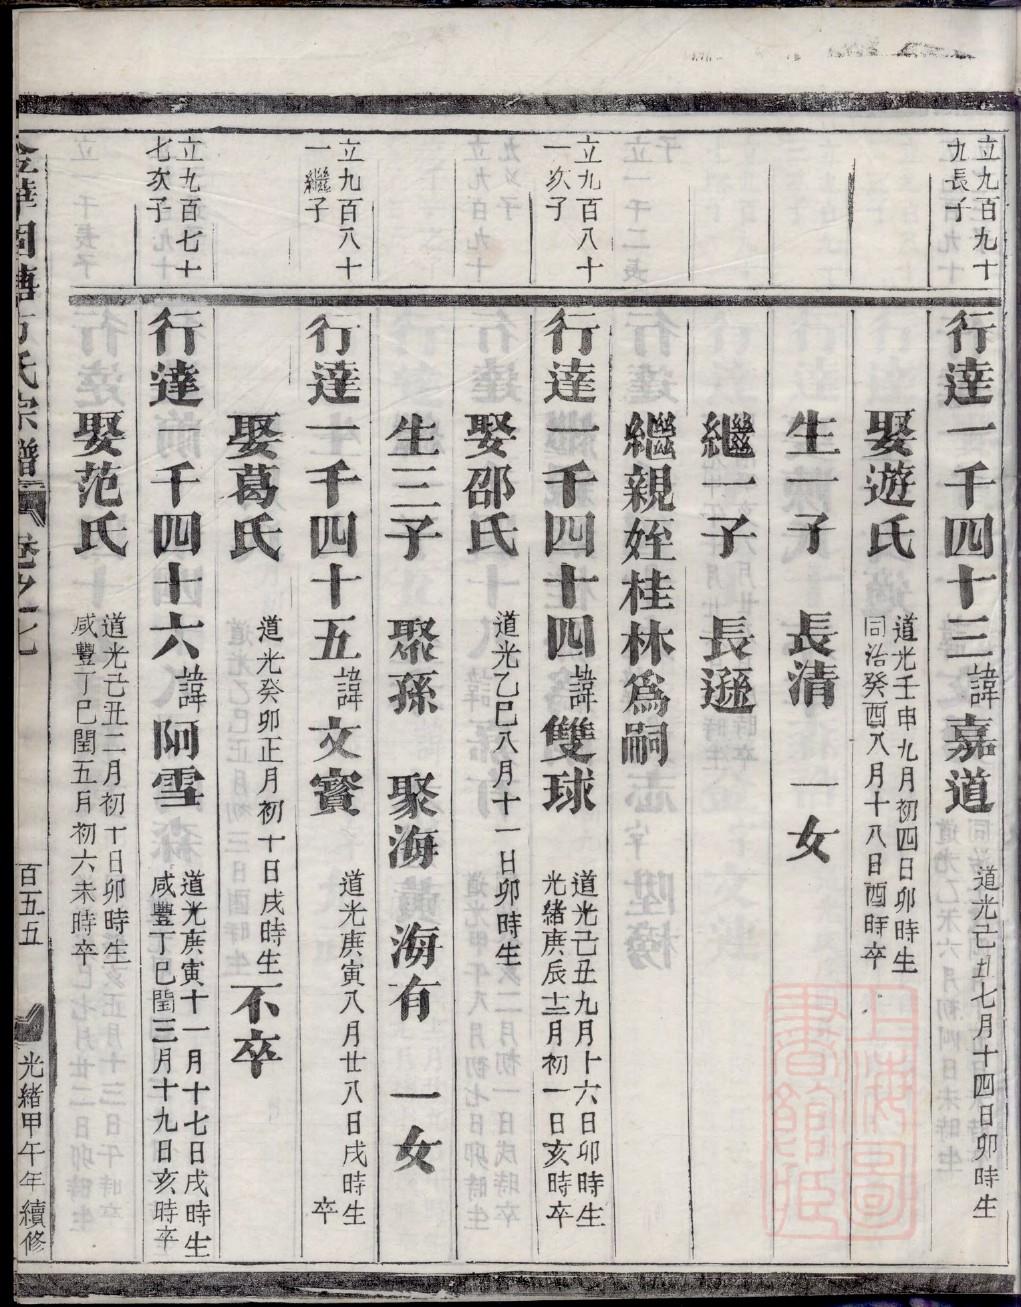 立九百九十
九長子
行達一千四十三諱嘉道 道光己丑七月十四日卯時生
娶遊氏 道光壬申九月初四日卯時生
同治癸酉八月十八日酉時卒
生一子 長清 一女
繼一子 長遜
繼親姪桂林爲嗣
立九百八十
一次子
行達一千四十四諱雙球 道光己丑九月十六日卯時生
光緒庚辰十二月初一日亥時卒
娶邵氏 道光乙巳八月十一日卯時生
生三子 聚孫 聚海 海有 一女
立九百八十
一繼子
行達一千四十五諱文賓 道光庚寅八月廿八日戌時生
卒
娶葛氏 道光癸卯正月初十日戌時生不卒
立九百七十
七次子
行達一千四十六諱阿雪 道光庚寅十一月十七日戌時生
咸豐丁巳閏三月十九日亥時卒
娶范氏 道光己丑二月初十日卯時生
咸豐丁巳閏五月初六未時卒
氏宗譜 卷之七 百五五 光緒甲午年續修
上海圖書館藏